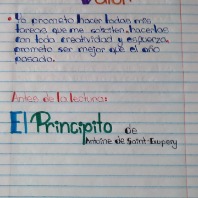 Valor
• Yo prometo hacer todas mis
tareas que me soliciten, hacerlas
con toda creatividad y esfuerzo,
prometo ser mejor que el año
pasado.
Antes de la lectura:
El Principito de
Antoine de Saint-Exupery